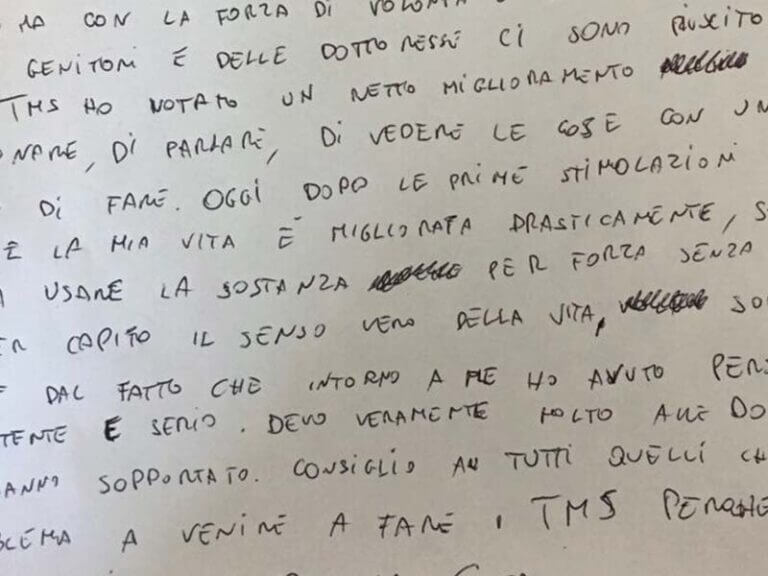 MA CON LA FORZA DI VOLONTÀ
GENITORI E DELLE DOTTORESSE CI SONO RIUSCITO
TMS HO NOTATO UN NETTO MIGLIORAMENTO
NARE, DI PARLARE, DI VEDERE LE COSE CON UN
DI FARE. OGGI DOPO LE PRIME STIMOLAZIONI
E LA MIA VITA È MIGLIORATA DRASTICAMENTE, S
USARE LA SOSTANZA PER FORZA SENZA
ER CAPITO IL SENSO VERO DELLA VITA, SO
E DAL FATTO CHE INTORNO A ME HO AVUTO PERS
TENTE E SERIO. DEVO VERAMENTE MOLTO ALLE DO
ANNO SOPPORTATO. CONSIGLIO A TUTTI QUELLI CH
BLEMA A VENIRE A FARE TMS PERCHÈ